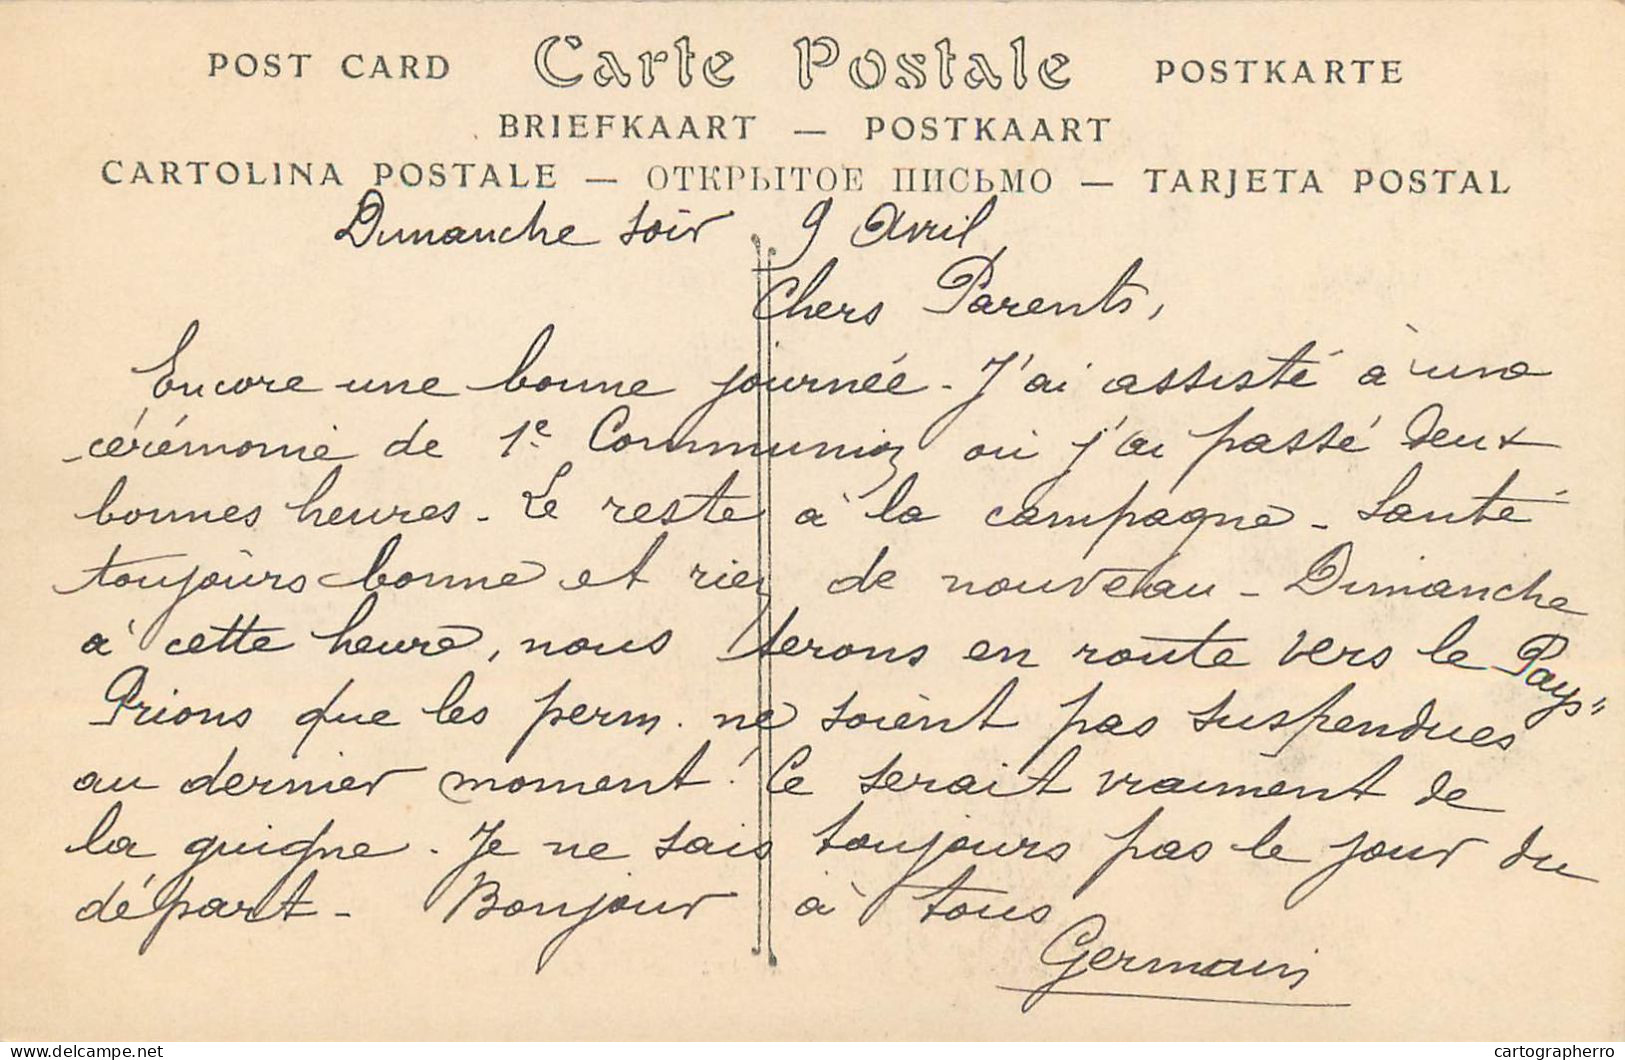 POST CARD Carte Postale POSTKARTE
BRIEFKAART — POSTKAART
CARTOLINA POSTALE — ОТКРЫТОЕ ПИСЬМО — TARJETA POSTAL
Dimanche soir 9 Avril
Chers Parents,
Encore une bonne journée - J'ai assisté à une
cérémonie de 1e Communion où j'ai passé deux
bonnes heures - Le reste à la campagne - Santé
toujours bonne et rien de nouveau - Dimanche
à cette heure, nous serons en route vers le Pays"
Prions que les perm. ne soient pas suspendues
au dernier moment ! Ce serait vraiment de
la guigne. Je ne sais toujours pas le jour du
départ - Bonjour à tous
Germain
https://www.delcampe.net
cartographerro